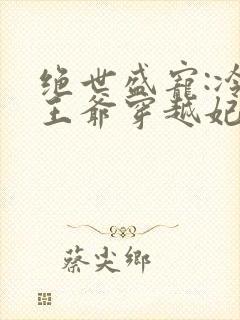 绝世盛宠:冷
王爷穿越妃
蔡尖乡